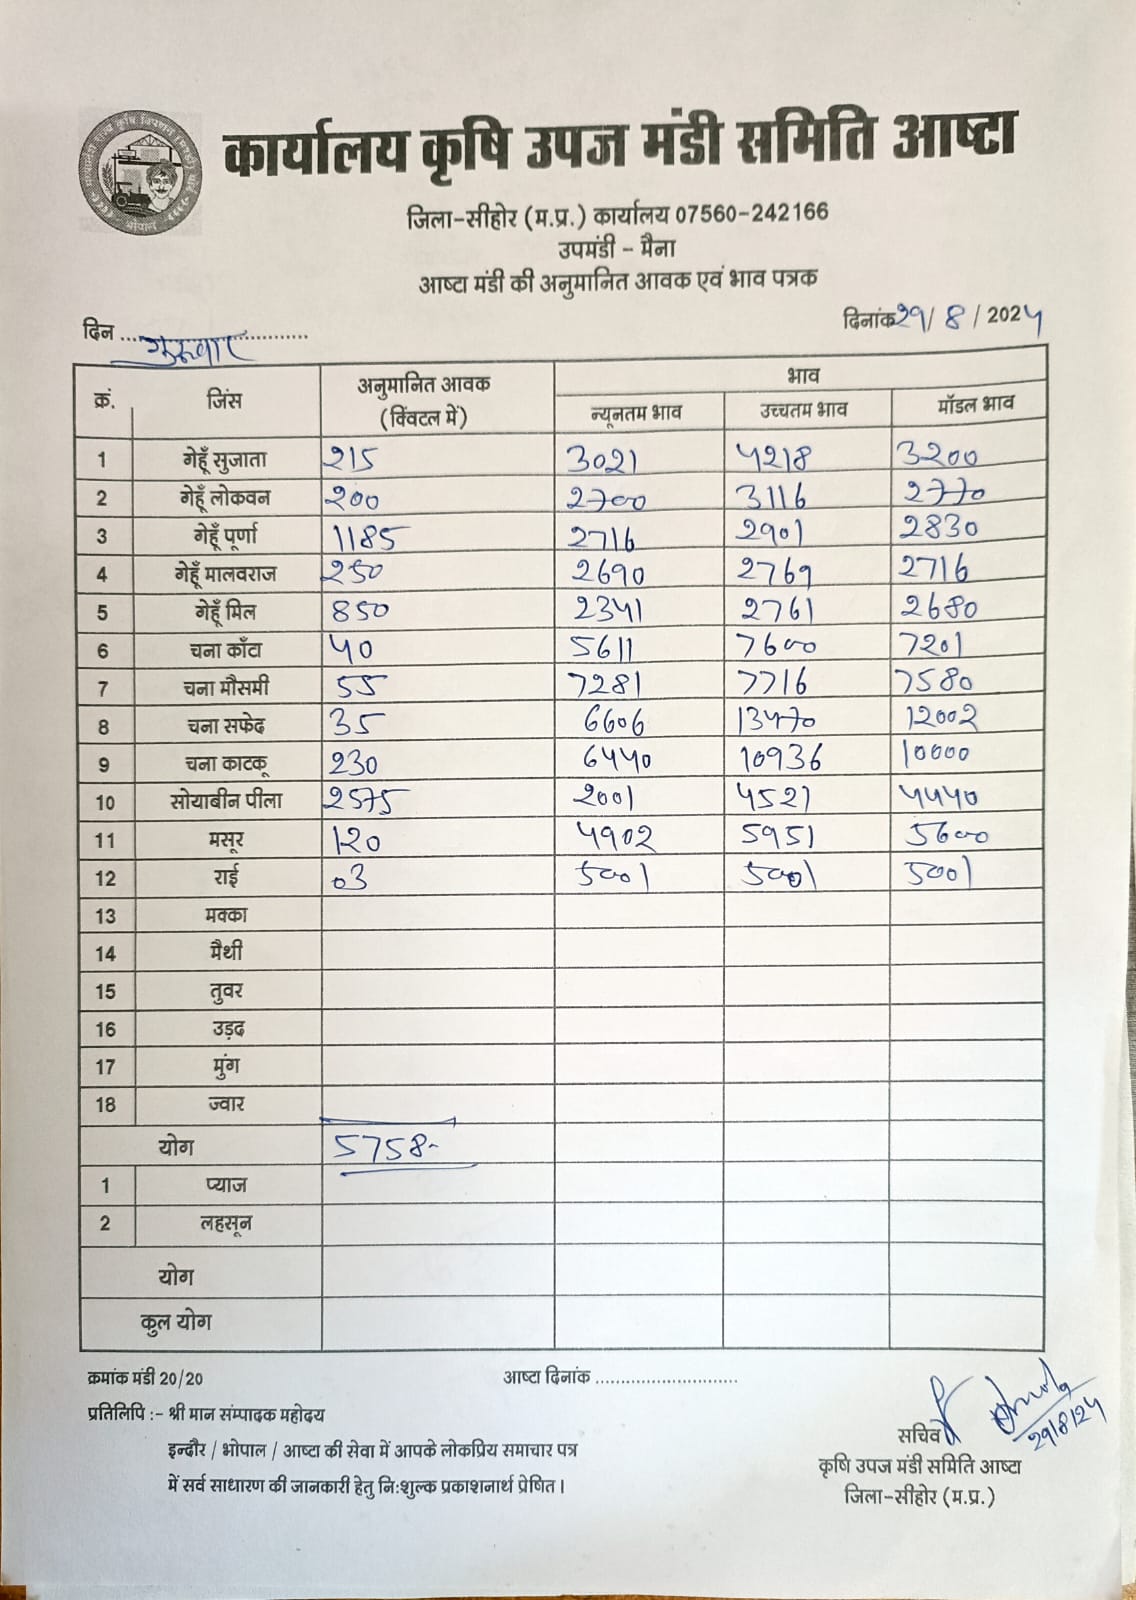 कार्यालय कृषि उपज मंडी समिति आष्टा
जिला-सीहोर (म.प्र.) कार्यालय 07560-242166
उपमंडी - मैना
आष्टा मंडी की अनुमानित आवक एवं भाव पत्रक
दिन ... गुरुवार ............
दिनांक 29/ 8 / 2024
क्रं. जिंस अनुमानित आवक (क्विंटल में) भाव
न्यूनतम भाव उच्चतम भाव मॉडल भाव
1 गेहूँ सुजाता 215 3021 4218 3200
2 गेहूँ लोकवन 200 2700 3116 2770
3 गेहूँ पूर्णा 1185 2716 2901 2830
4 गेहूँ मालवराज 250 2690 2769 2716
5 गेहूँ मिल 850 2341 2761 2680
6 चना काँटा 40 5611 7600 7201
7 चना मौसमी 55 7281 7716 7580
8 चना सफेद 35 6606 13470 12002
9 चना काटकू 230 6440 10936 10000
10 सोयाबीन पीला 2575 2001 4521 4440
11 मसूर 120 4902 5951 5600
12 राई 03 5001 5001 5001
13 मक्का
14 मैथी
15 तुवर
16 उड़द
17 मुंग
18 ज्वार
योग 5758-
1 प्याज
2 लहसून
योग
कुल योग
क्रमांक मंडी 20/20
आष्टा दिनांक ............................
प्रतिलिपि :- श्री मान सम्पादक महोदय
इन्दौर / भोपाल / आष्टा की सेवा में आपके लोकप्रिय समाचार पत्र
में सर्व साधारण की जानकारी हेतु नि:शुल्क प्रकाशनार्थ प्रेषित।
29/8/24
सचिव
कृषि उपज मंडी समिति आष्टा
जिला-सीहोर (म.प्र.)